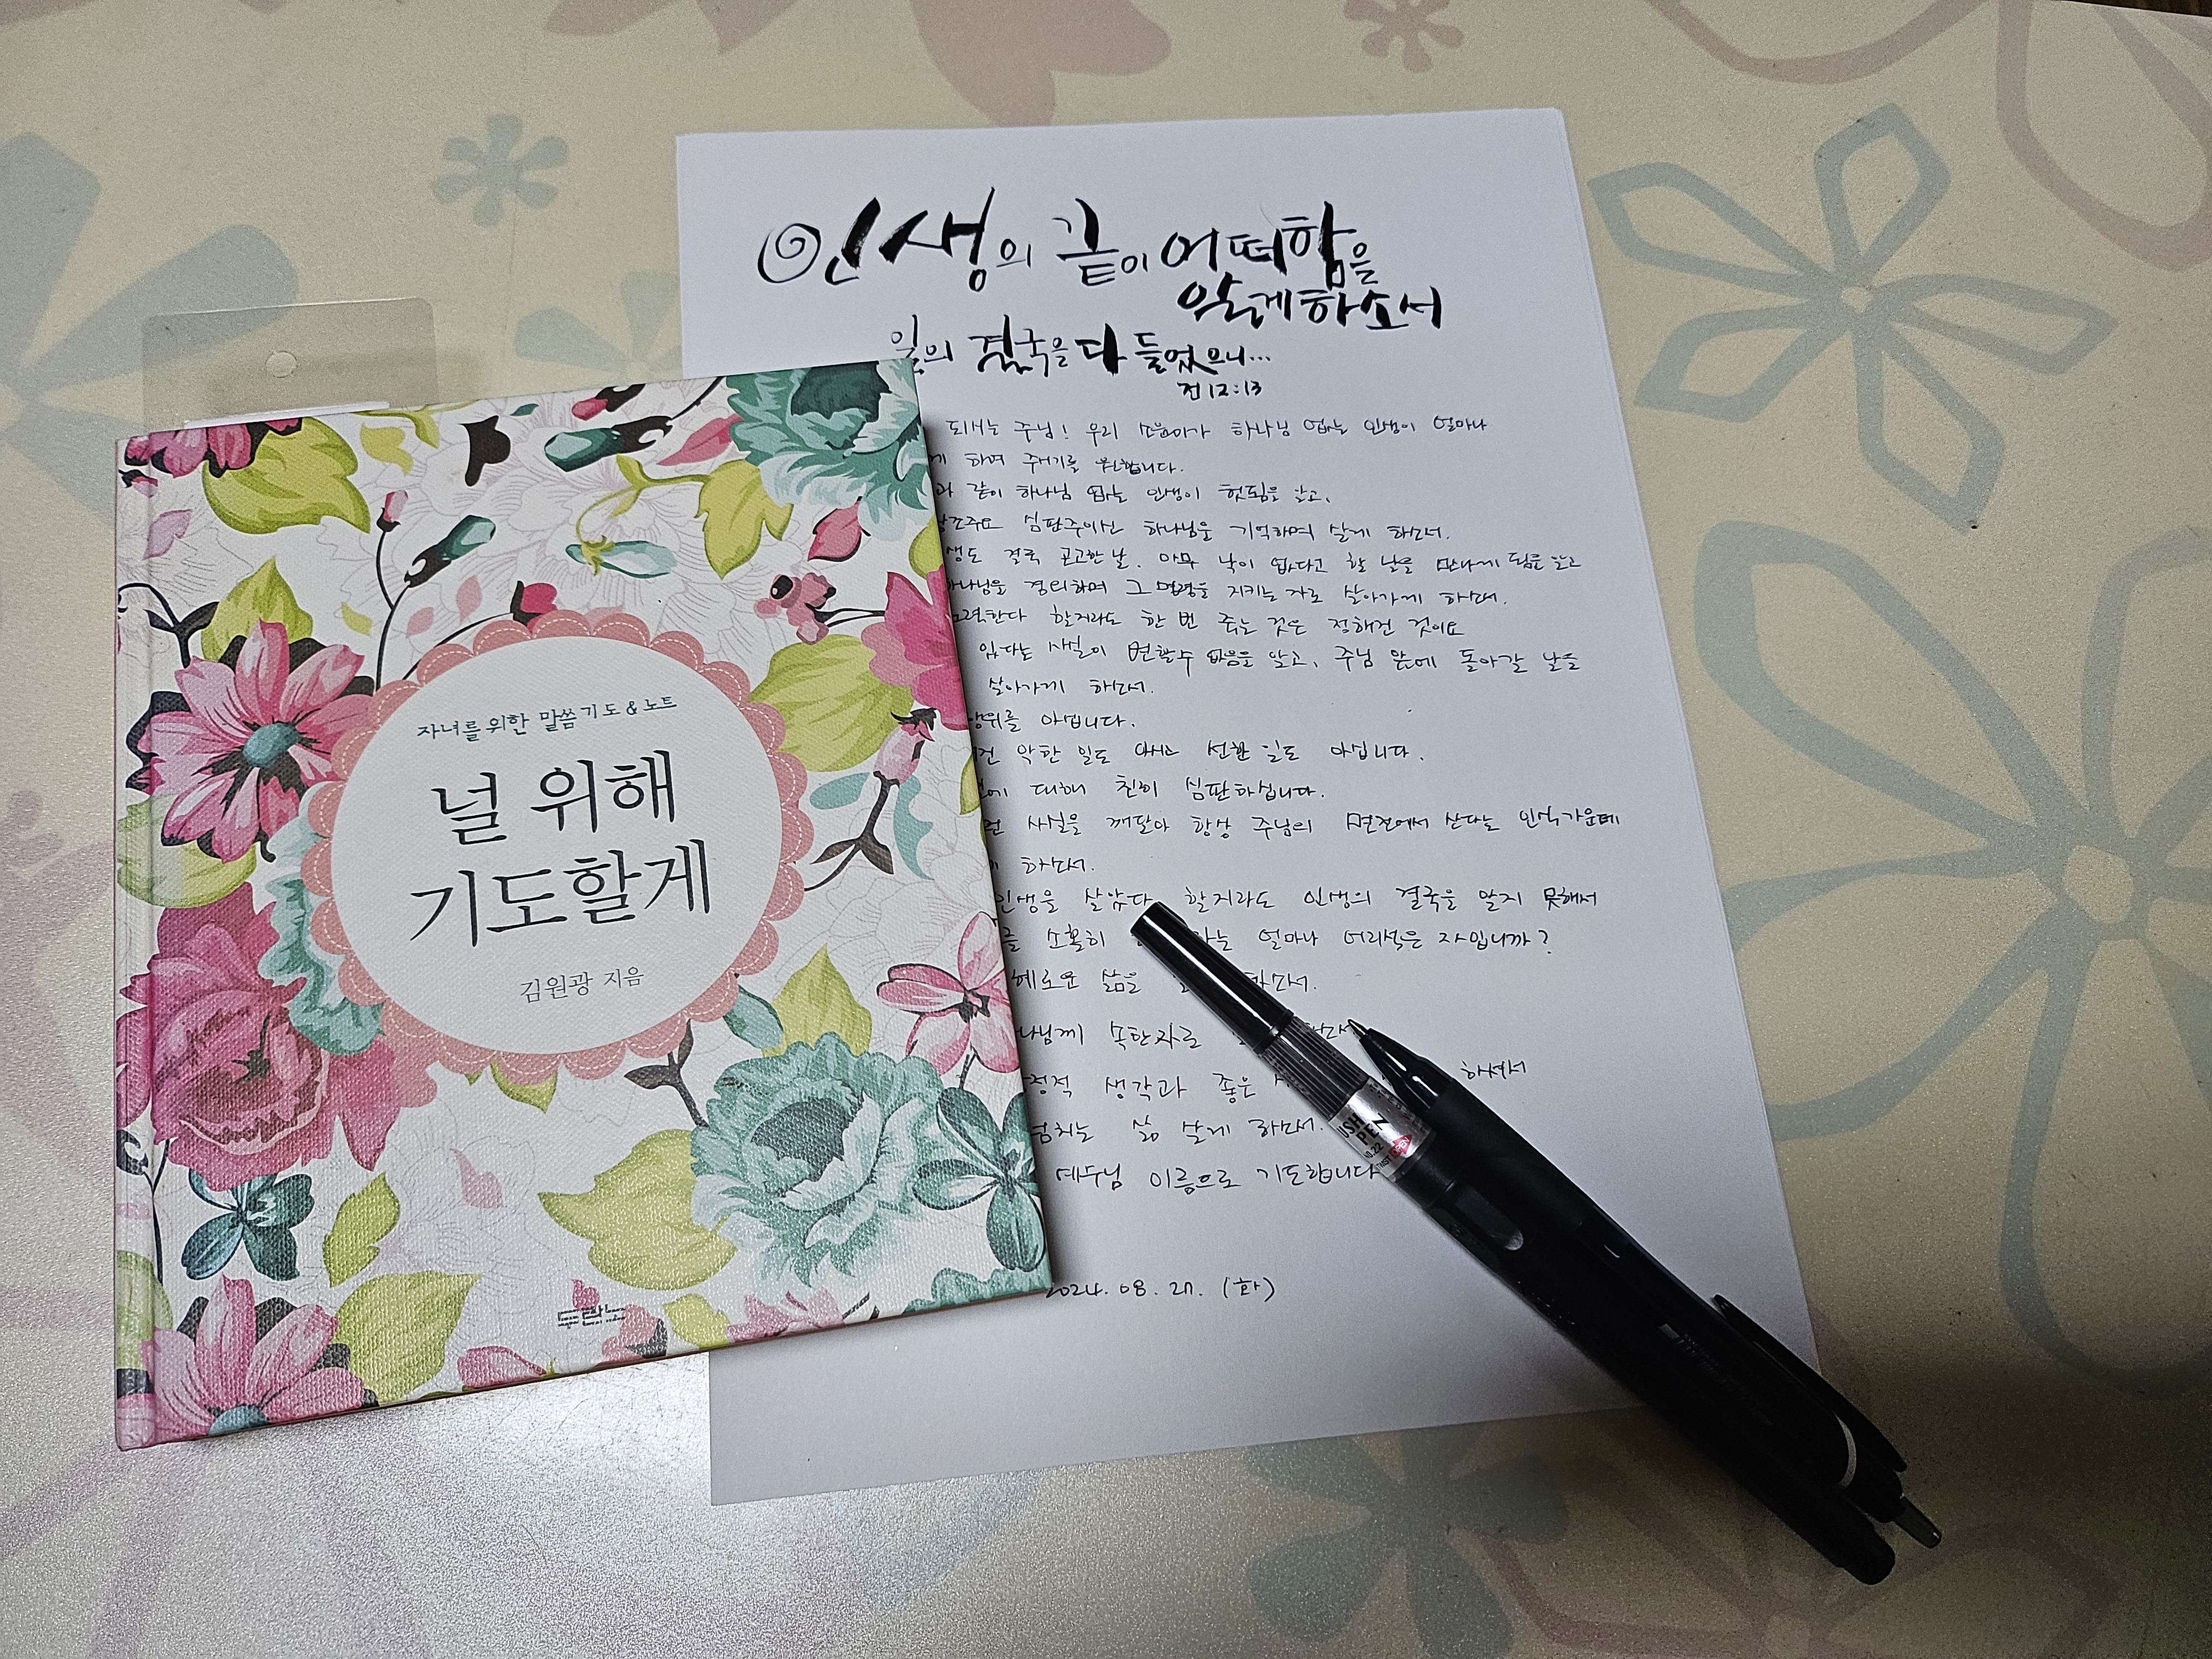 인생의 끝이 어떠함을
알게하소서
일의 결국을 다 들었으니...
전 12:13
되시는 주님! 우리 하나님 없는 인생이 얼마나
하여 주시기를 원합니다.
같이 하나님 없는 인생이 헛됨을 알고,
심판주이신 하나님을 기억하며 살게 하소서.
결국 곤고한 날, 아무 낙이 없다고 할 날을 만나게 됨을 알고
경외하며 그 명령을 지키는 자로 살아가게 하소서.
할지라도 한 번 죽는 것은 정해진 것이요
있다는 사실이 변할수 없음을 알고, 주님 앞에 돌아갈 날을
살아가게 하소서.
아십니다.
악한 일도 선한 일도 아십니다.
대해 친히 심판하십니다.
사실을 깨달아 항상 주님의 면전에서 산다는 인식가운데
하소서.
인생을 살았다 할지라도 인생의 결국을 알지 못해서
소홀히 얼마나 어리석은 자입니까?
삶을
속한자로
생각과 좋은 하셔서
넘치는 삶 살게 하소서.
예수님 이름으로 기도합니다
2024. 08. 27. (화)
자녀를 위한 말씀 기도 & 노트
널 위해
기도할게
김원광 지음
PEN